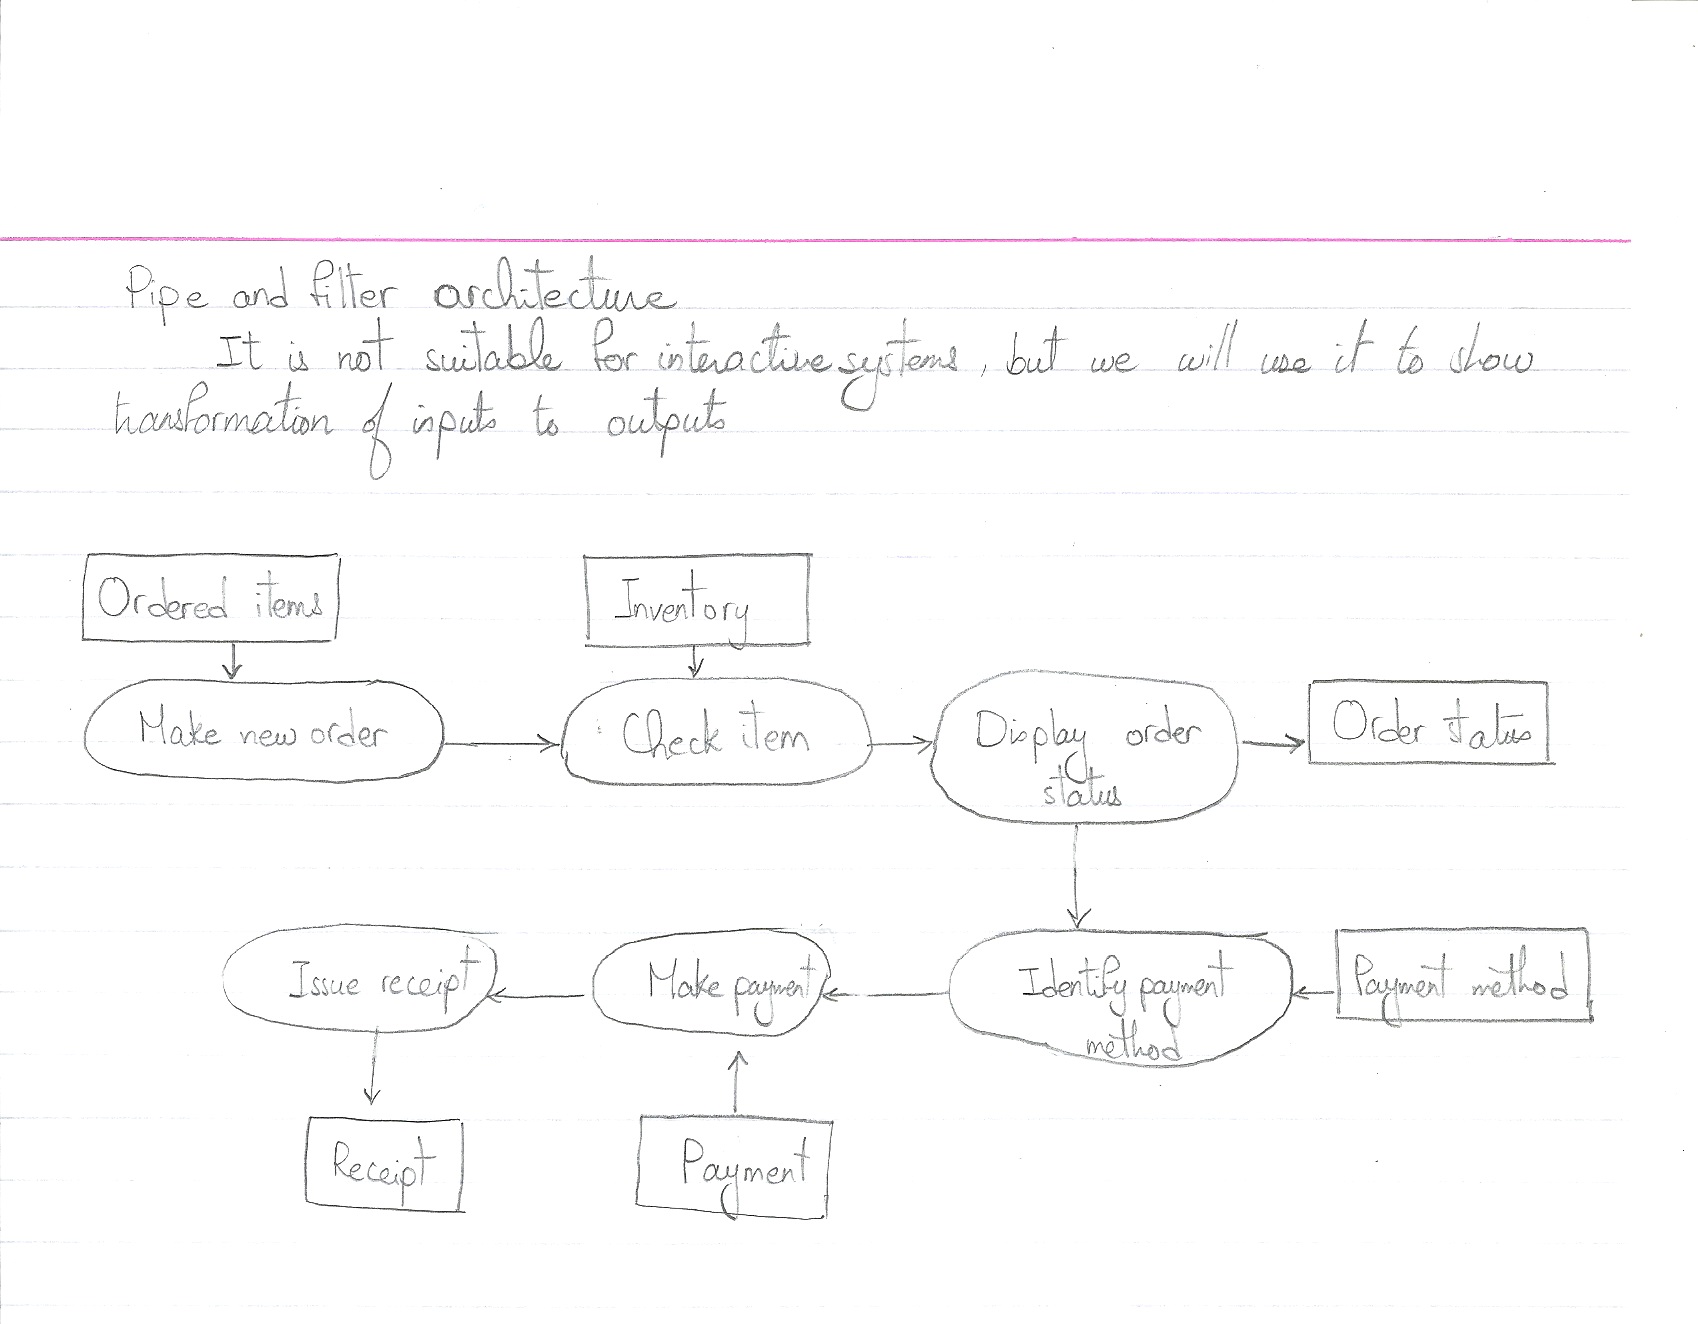 Pipe and filter architecture
It is not suitable for interactive systems, but we will use it to show
transformation of inputs to outputs
Ordered items
Inventory
Make new order
Check item
Display order
status
Order status
Issue receipt
Make payment
Identify payment
method
Payment method
Receipt
Payment